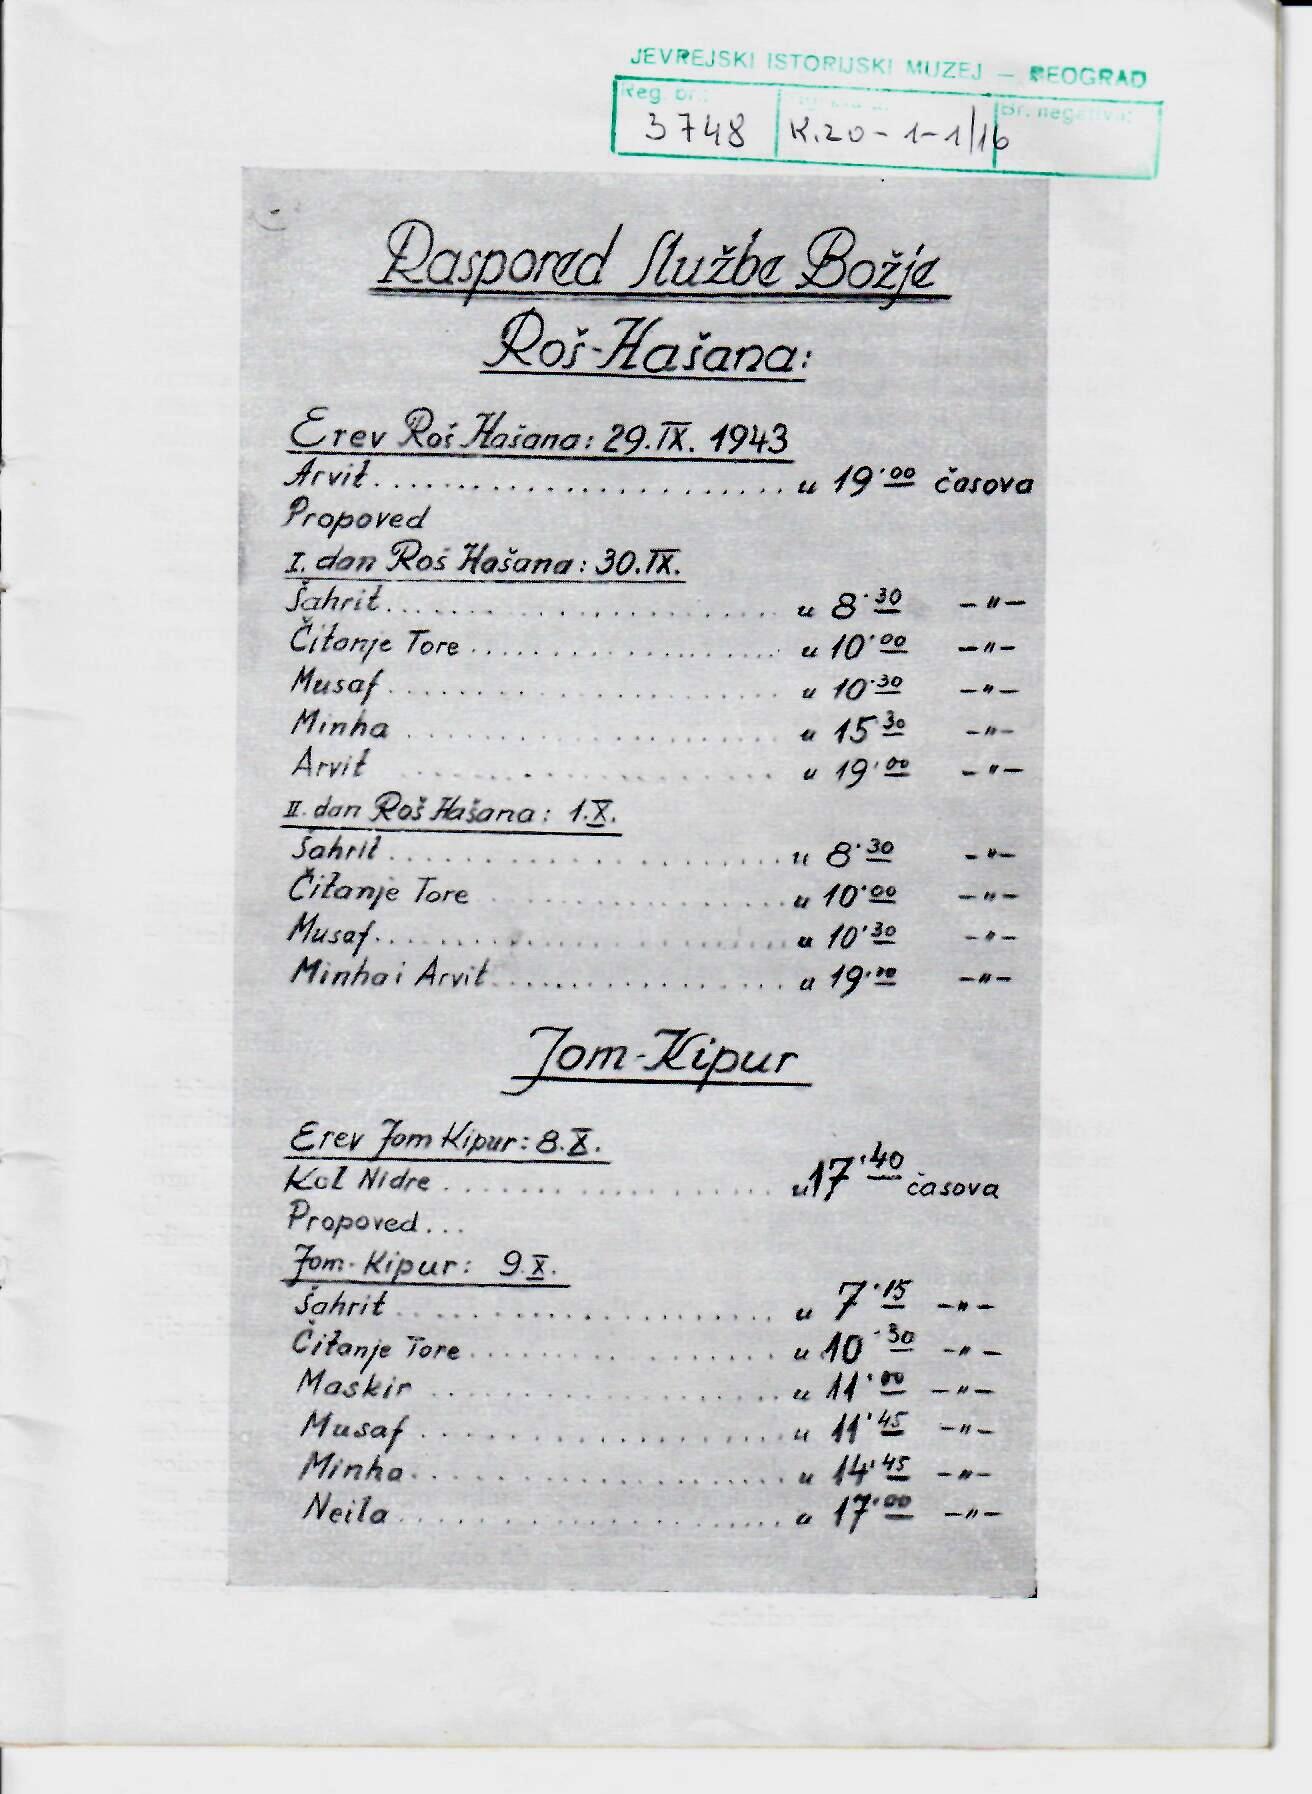 JEVREJSKI ISTORIJSKI MUZEJ — BEOGRAD
Reg. br.: Br. negativa:
3748 K.20-1-1/16
Raspored Službe Božje
Roš-Hašana:
Erev Roš Hašana: 29.IX. 1943
Arvit........................ u 19.00 časova
Propoved
I. dan Roš Hašana: 30.IX.
Šahrit........................ u 8.30 -"-
Čitanje Tore.................... u 10.00 -"-
Musaf........................ u 10.30 -"-
Minha ........................ u 15.30 -"-
Arvit ........................ u 19.00 -"-
II. dan Roš Hašana: 1.X.
Šahrit........................ u 8.30 -"-
Čitanje Tore .................... u 10.00 -"-
Musaf........................ u 10.30 -"-
Minha i Arvit.................... u 19.00 -"-
Jom-Kipur
Erev Jom Kipur: 8.X.
Kol Nidre ...................... u 17.40 časova
Propoved...
Jom-Kipur: 9.X.
Šahrit........................ u 7.15 -"-
Čitanje Tore.................... u 10.30 -"-
Maskir ........................ u 11.00 -"-
Musaf ........................ u 11.45 -"-
Minha........................ u 14.45 -"-
Neila........................ u 17.00 -"-